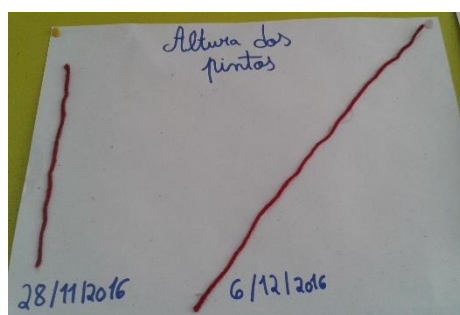 Altura dos
pintos
28/11/2016
6/12/2016